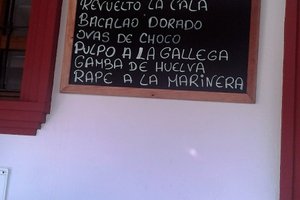 REVUELTO LA CALA
BACALAO DORADO
OVAS DE CHOCO
PULPO A LA GALLEGA
GAMBA DE HUELVA
RAPE A LA MARINERA